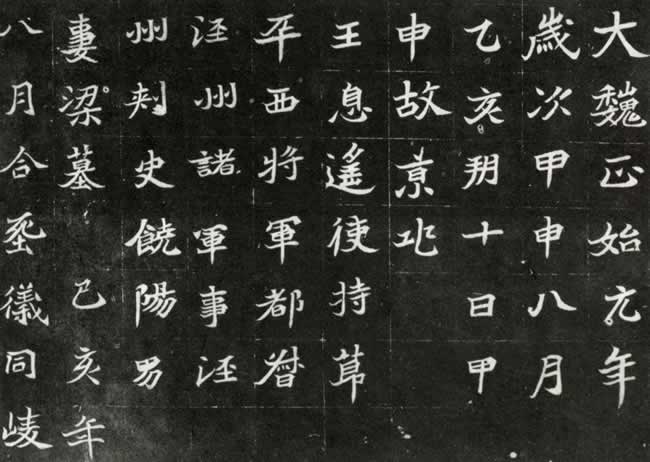 大魏正始元年
歲次甲申八月
乙亥朔十日甲
申故京兆
王息遙使持節
平西將軍都督
涇州諸軍事涇
州刺史饒陽男
妻梁墓 巳亥年
八月合葬儀同崚